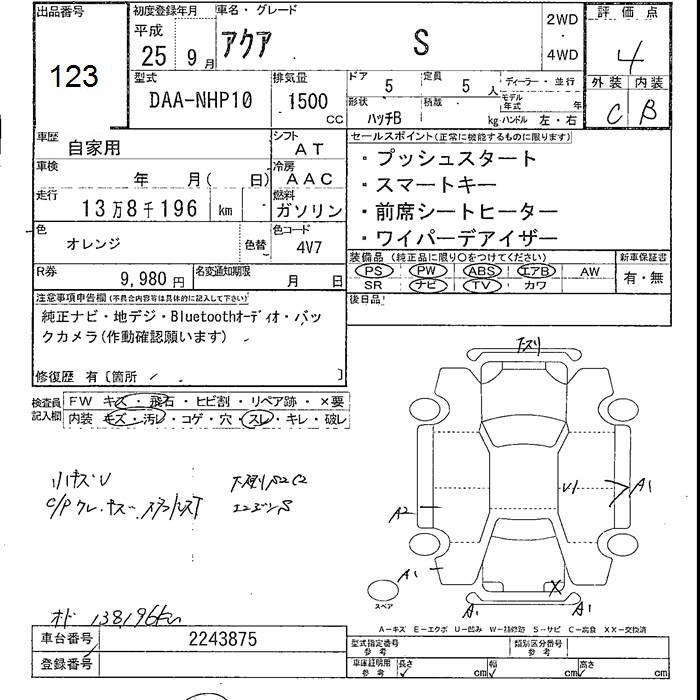 出品番号
123
初度登録年月
平成
25年9月
車名・グレード
アクア S
2WD
・
4WD
評価点
4
外装 内装
C B
型式
DAA-NHP10
排気量
1500
CC
ドア 5
定員 5人
ディーラー・並行
形状 ハッチB
積載 kg
モデル年式 年
ハンドル 左・右
車歴 自家用
シフト AT
車検 年 月( 日)
冷房 AAC
走行 13万8千196 km
燃料 ガソリン
色 オレンジ
色替
色コード 4V7
R券 9,980円
名変通知期限 月 日
セールスポイント(正常に機能するものに限ります)
・プッシュスタート
・スマートキー
・前席シートヒーター
・ワイパーデアイザー
装備品(純正品に限り○をつけてください)
新車保証書
PS PW ABS エアB AW
SR ナビ TV カワ
有・無
後日品
注意事項申告欄(不具合内容等は具体的に記入して下さい)
純正ナビ・地デジ・Bluetoothオーディオ・バッ
クカメラ(作動確認願います)
修復歴 有〔箇所 〕
検査員記入欄
FW キズ・飛石・ヒビ割・リペア跡・×要
内装 キズ・汚レ・コゲ・穴・スレ・キレ・破レ
小キズU
下スリ
U1
A1
A2
A1
X
A1
A1
スペア
A-キズ E-エクボ U-凹み W-補修跡 S-サビ C-腐食 XX-交換済
オド 138196km
車台番号 2243875
登録番号
型式指定番号
参考
類別区分番号
参考
車庫証明用
参考
長さ cm 幅 cm 高さ cm